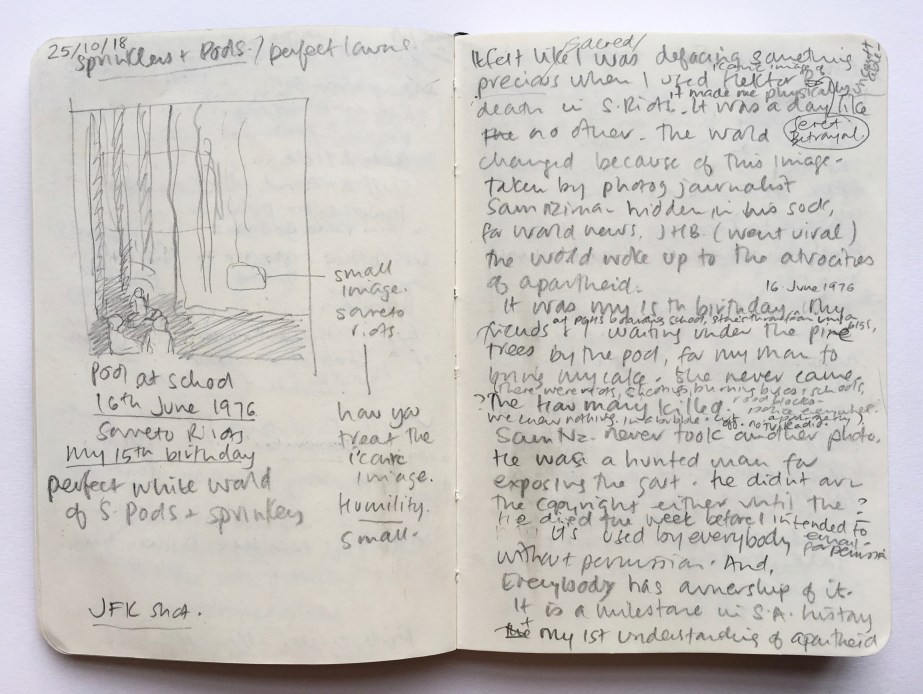 25/10/18
sprinklers + Pools / perfect lawns.
small
image.
soweto
riots.
how you
treat the
iconic
image.
Humility.
small.
Pool at school
16th June 1976
Soweto Riots
My 15th birthday
perfect white world
of S. Pools + sprinklers
JFK shot.
sacred/
It felt like I was defacing something
iconic image of
precious when I used Hektor
it made me physically
death in S. Riots. It was a day like
no other. The world
secret
Betrayal.
changed because of this image -
taken by photog journalist
Sam Nzima - hidden in his sock,
for world news. JHB. (went viral)
the world woke up to the atrocities
of apartheid.
16 June 1976
It was my 15th birthday. My
at PGHS boarding school,
friends & I waiting under the pine
trees by the pool, for my mom to
bring my cake. She never came.
There were riots, shootings, burning buses, schools,
road blocks -
? The How many killed. police everywhere.
we knew nothing, in a bubble. cut off. no TV, radio.
Sam Nz. never took another photo.
He was a hunted man for
exposing the govt. He didn't own
the copyright either until the ?
He died the week before I intended to
email -
for permission
It's used by everybody
without permission. And,
Everybody has ownership of it.
It is a milestone in S.A. history
+ my 1st understanding of apartheid